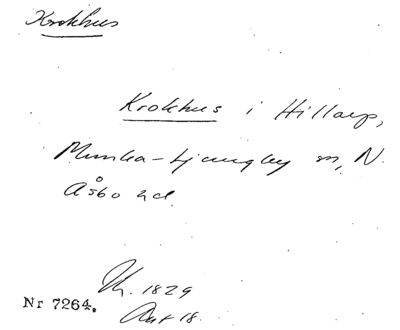 Krokhus
Krokhus i Hillarp,
Munka-Ljungby sn, N.
Åsbo hd.
Nr 7264.
1829
Akt 18.